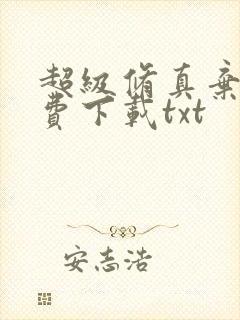 超級脩真棄
費下載txt
安志浩